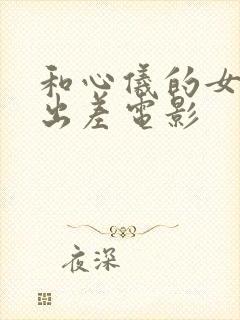 和心儀的女
出差電影
夜深